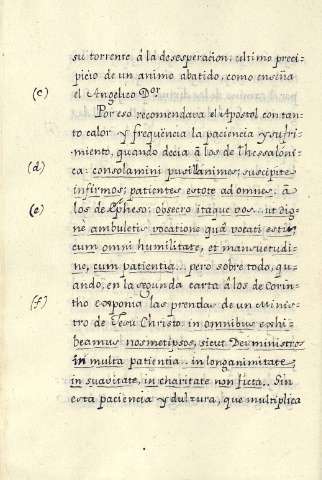 su torrente à la desesperacion: ultimo preci=
picio de un animo abatido, como enseña
(c) el Angelico Dor
Por eso recomendava el Apostol con tan=
to calor y frequència la paciencia y sufri=
miento, quando decia à los de Thessaloni=
(d) ca: consolamini pusillanimes; suscipite
infirmos; patientes estote ad omnes: à
(e) los de Epheso: obsecro itaque vos...ut dig=
nè ambuletis vocatione quâ vocati estis
cum omni humilitate, et mansuetudi=
ne, cum patientia... pero sobre todo, qu=
ando, en la segunda carta à los de Corin=
(f) tho exponia las prendas de un Minis=
tro de Jesu Christo: in omnibus exhi=
beamus nosmetipsos, sicut Dei ministros
in multa patientia.. in longanimitate,
in suavitate, in charitate non ficta.. Sin
esta paciencia y dultura, que multiplica